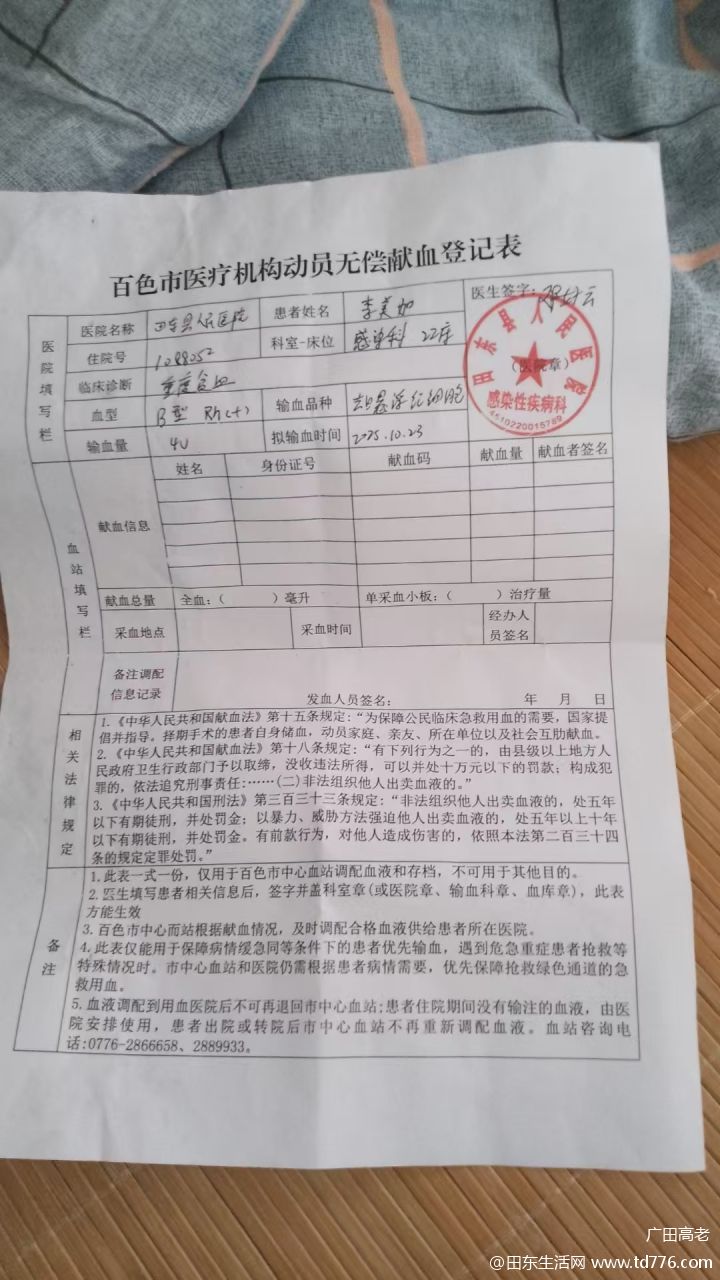 百色市医疗机构动员无偿献血登记表
医院填写栏
医院名称 田东县人民医院 患者姓名 李美如 医生签字:
住院号 1098052 科室-床位 感染科 22床
临床诊断 重度贫血
(医院章)
田东县人民医院
感染性疾病科
4510220015789
血型 B型 Rh(+) 输血品种 去白悬浮红细胞
输血量 4U 拟输血时间 2025.10.23
血站填写栏
献血信息 姓名 身份证号 献血码 献血量 献血者签名
献血总量 全血:( )毫升 单采血小板:( )治疗量
采血地点 采血时间 经办人员签名
备注调配信息记录
发血人员签名: 年 月 日
相关法律规定
1.《中华人民共和国献血法》第十五条规定:“为保障公民临床急救用血的需要，国家提
倡并指导。择期手术的患者自身储血，动员家庭、亲友、所在单位以及社会互助献血。
2.《中华人民共和国献血法》第十八条规定:“有下列行为之一的，由县级以上地方人
民政府卫生行政部门予以取缔，没收违法所得，可以并处十万元以下的罚款；构成犯
罪的，依法追究刑事责任:……(二)非法组织他人出卖血液的。”
3.《中华人民共和国刑法》第三百三十三条规定:“非法组织他人出卖血液的，处五年
以下有期徒刑，并处罚金；以暴力、威胁方法强迫他人出卖血液的，处五年以上十年
以下有期徒刑，并处罚金。有前款行为，对他人造成伤害的，依照本法第二百三十四
条的规定定罪处罚。”
备注
1.此表一式一份，仅用于百色市中心血站调配血液和存档，不可用于其他目的。
2.医生填写患者相关信息后，签字并盖科室章(或医院章、输血科章、血库章)，此表
方能生效
3.百色市中心而站根据献血情况，及时调配合格血液供给患者所在医院。
4.此表仅能用于保障病情缓急同等条件下的患者优先输血，遇到危急重症患者抢救等
特殊情况时。市中心血站和医院仍需根据患者病情需要，优先保障抢救绿色通道的急
救用血。
5.血液调配到用血医院后不可再退回市中心血站;患者住院期间没有输注的血液，由医
院安排使用，患者出院或转院后市中心血站不再重新调配血液。血站咨询电
话:0776-2866658、2889933。
广田高老
@田东生活网 www.td776.com